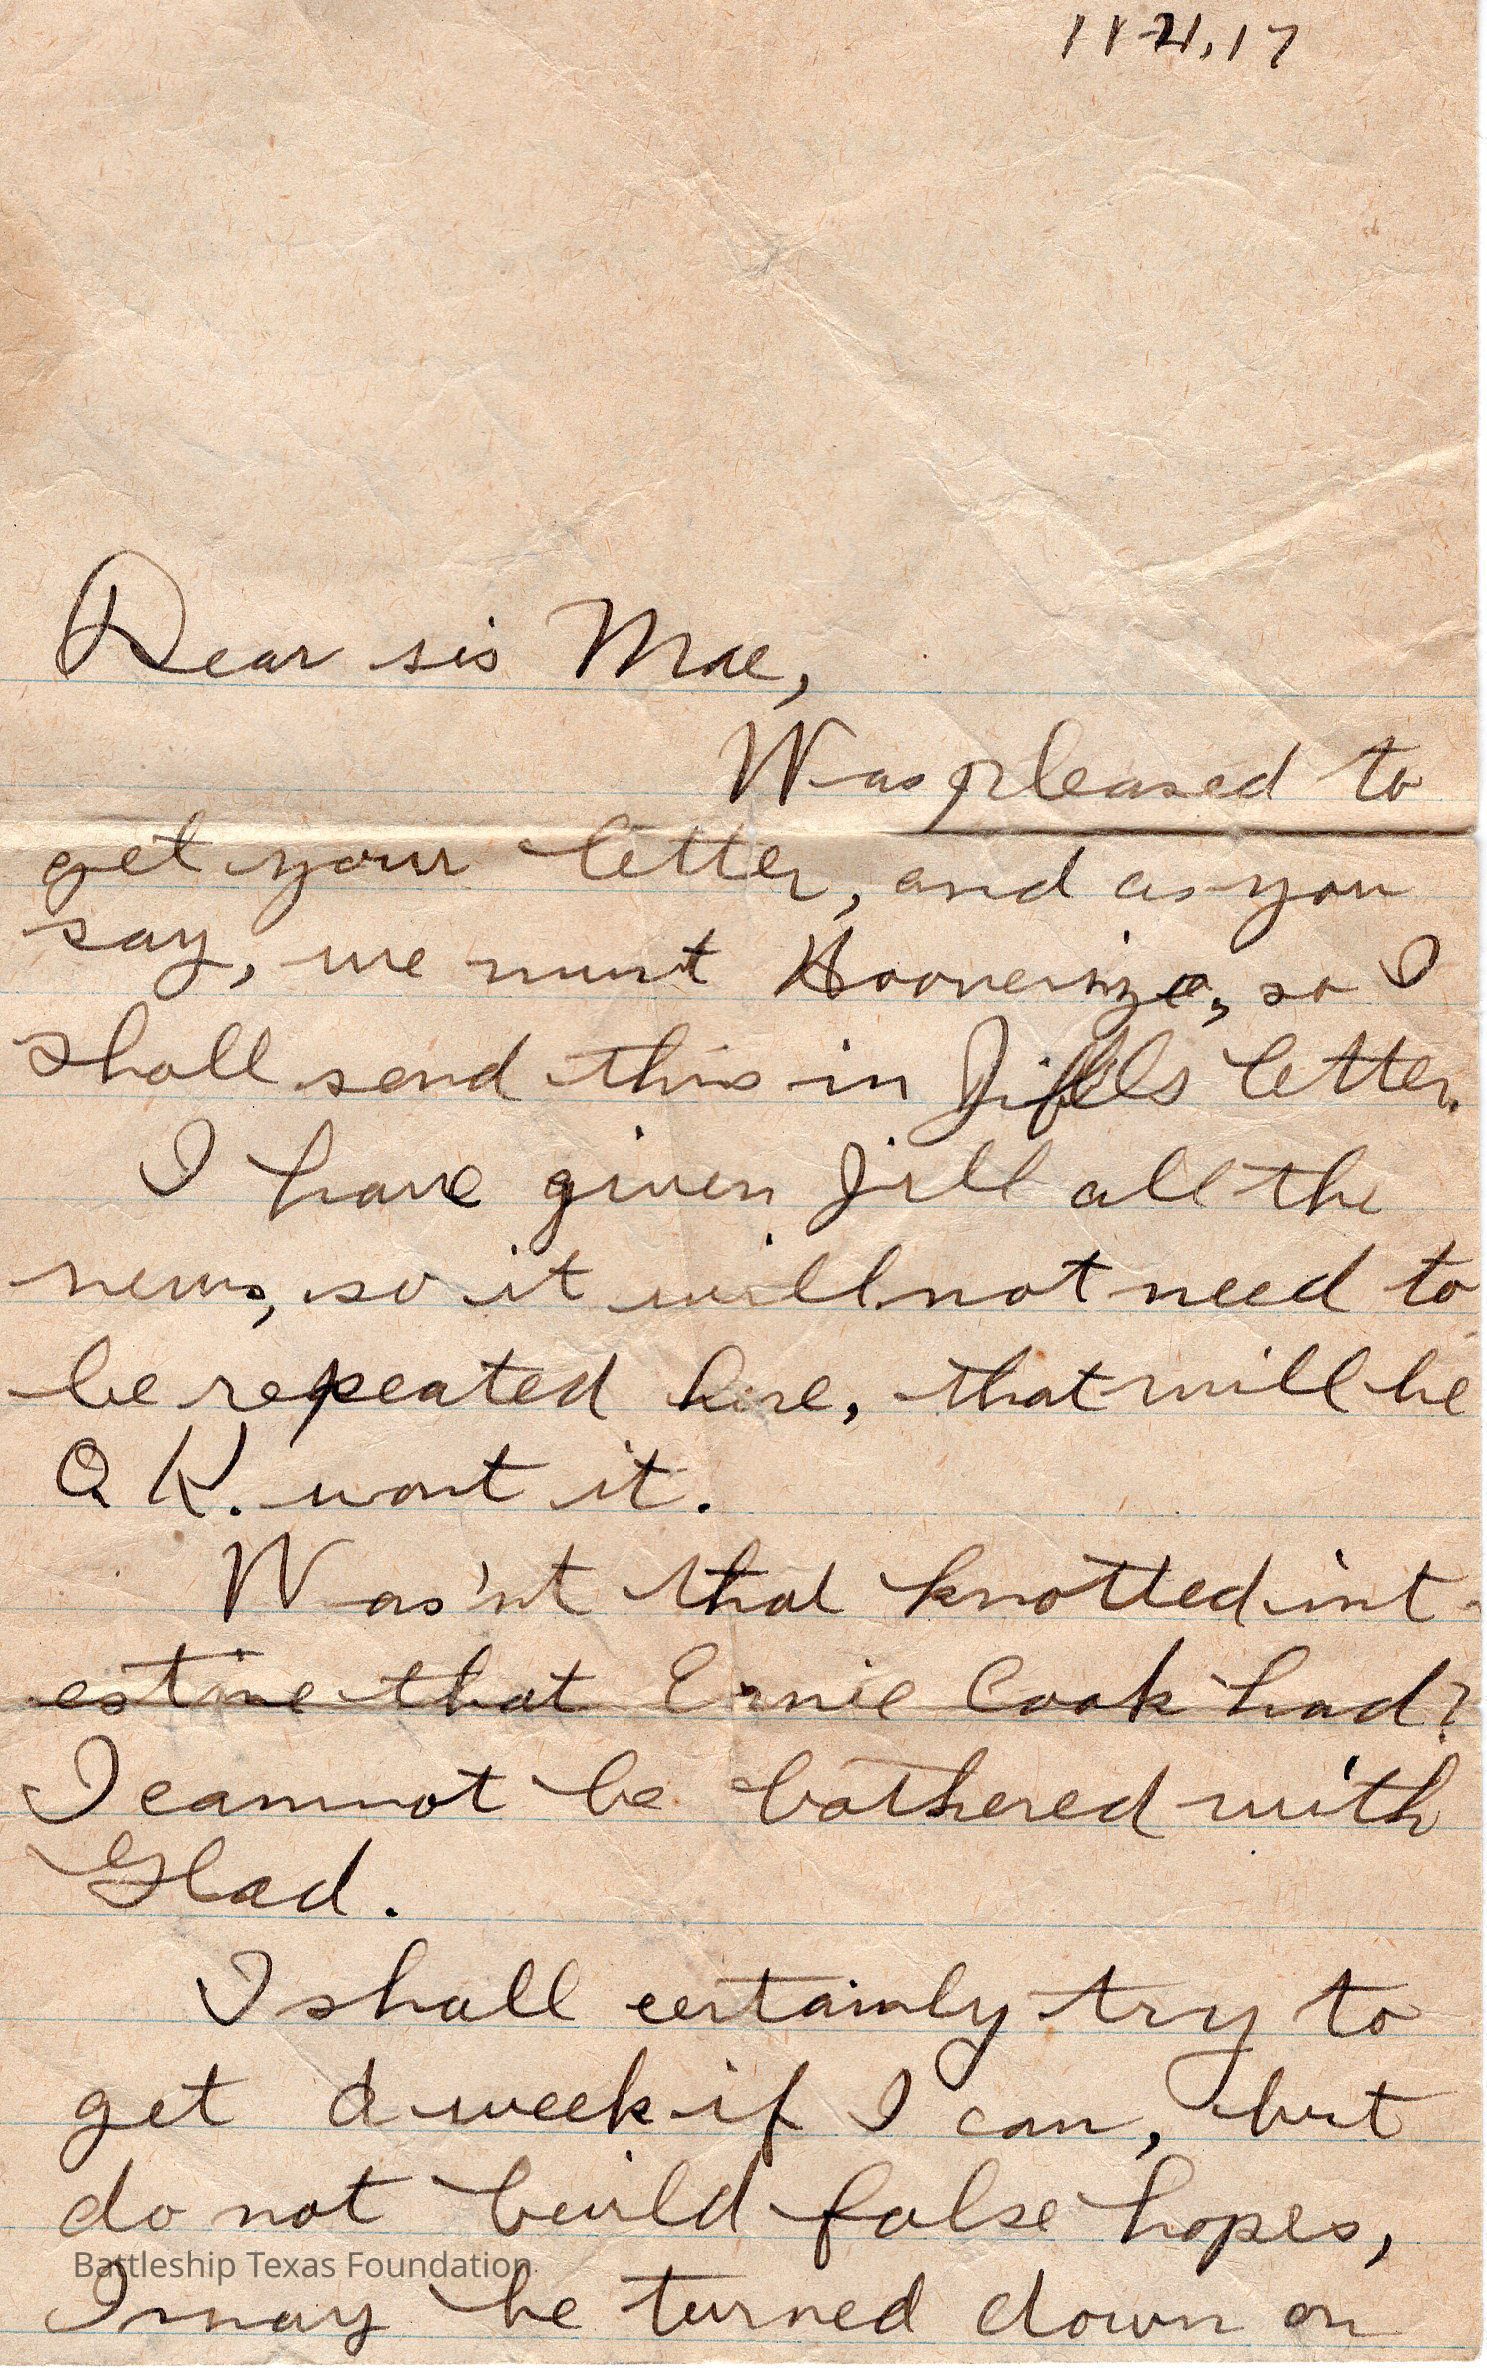 11-21,17
Dear sis Mae,
Was pleased to
get your letter, and as you
say, we must Hooverize, so I
shall send this in Jill's letter.
I have given Jill all the
news, so it will not need to
be repeated here, that will be
O.K. wont it.
Was'nt that knotted int-
estine that Ernie Cook had?
I cannot be bothered with
Glad.
I shall certainly try to
get a week if I can, but
do not build false hopes,
Battleship Texas Foundation
I may be turned down on